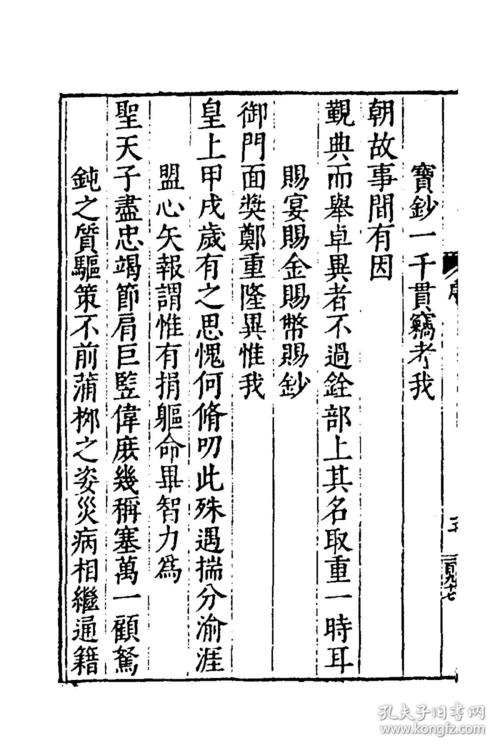 寶鈔一千貫竊考我
朝故事間有因
覲典而舉卓異者不過銓部上其名取重一時耳
賜宴賜金賜幣賜鈔
御門面奬鄭重隆異惟我
皇上甲戌歲有之思愧何脩叨此殊遇揣分渝涯
盟心矢報謂惟有捐軀命畢智力爲
聖天子盡忠竭節肩巨監偉庻幾稱塞萬一顧駑
鈍之質驅策不前蒲桞之姿災病相繼通籍
孔夫子旧书网
www.kongfz.com